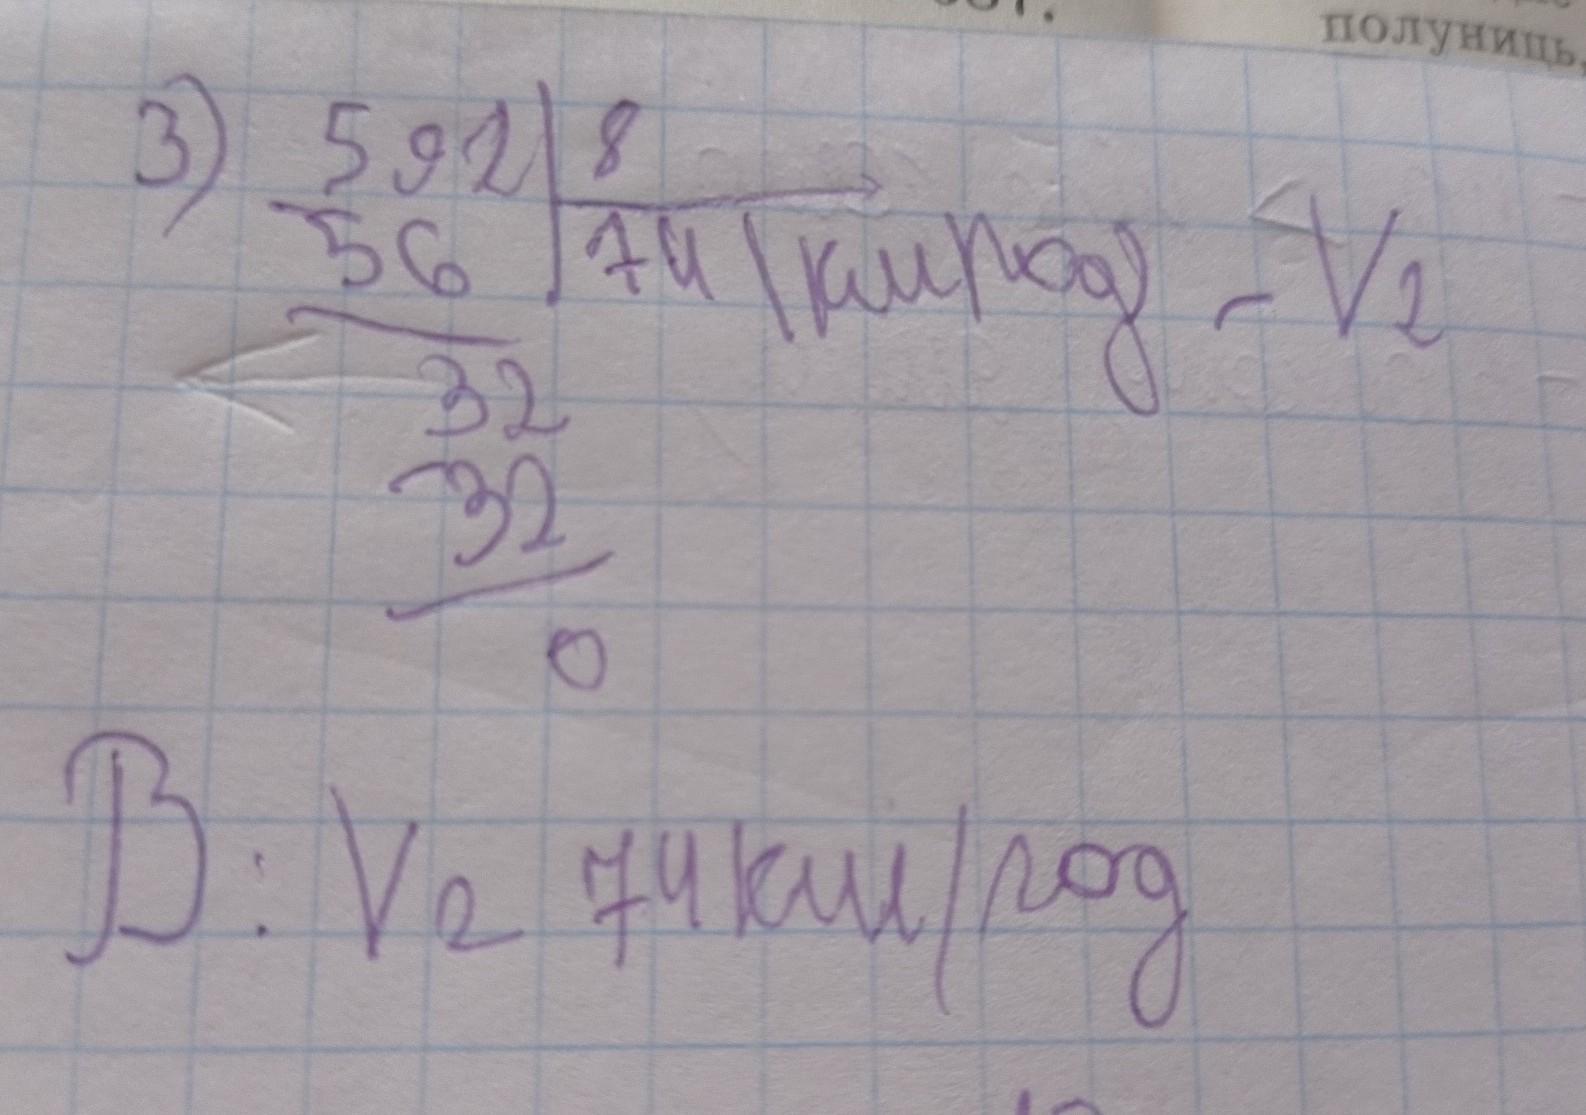 полуниць,
3) 592 | 8
56 | 74 | км/год - V2
32
32
0
В: V2 74 км/год